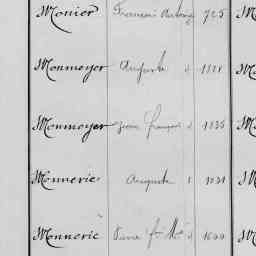 Monier François Antoine 725
Monmeyer Auguste d 1128
Monmeyer Jean François d 1335
Monnerie Auguste 1 1131
Monnerie Pierre fs